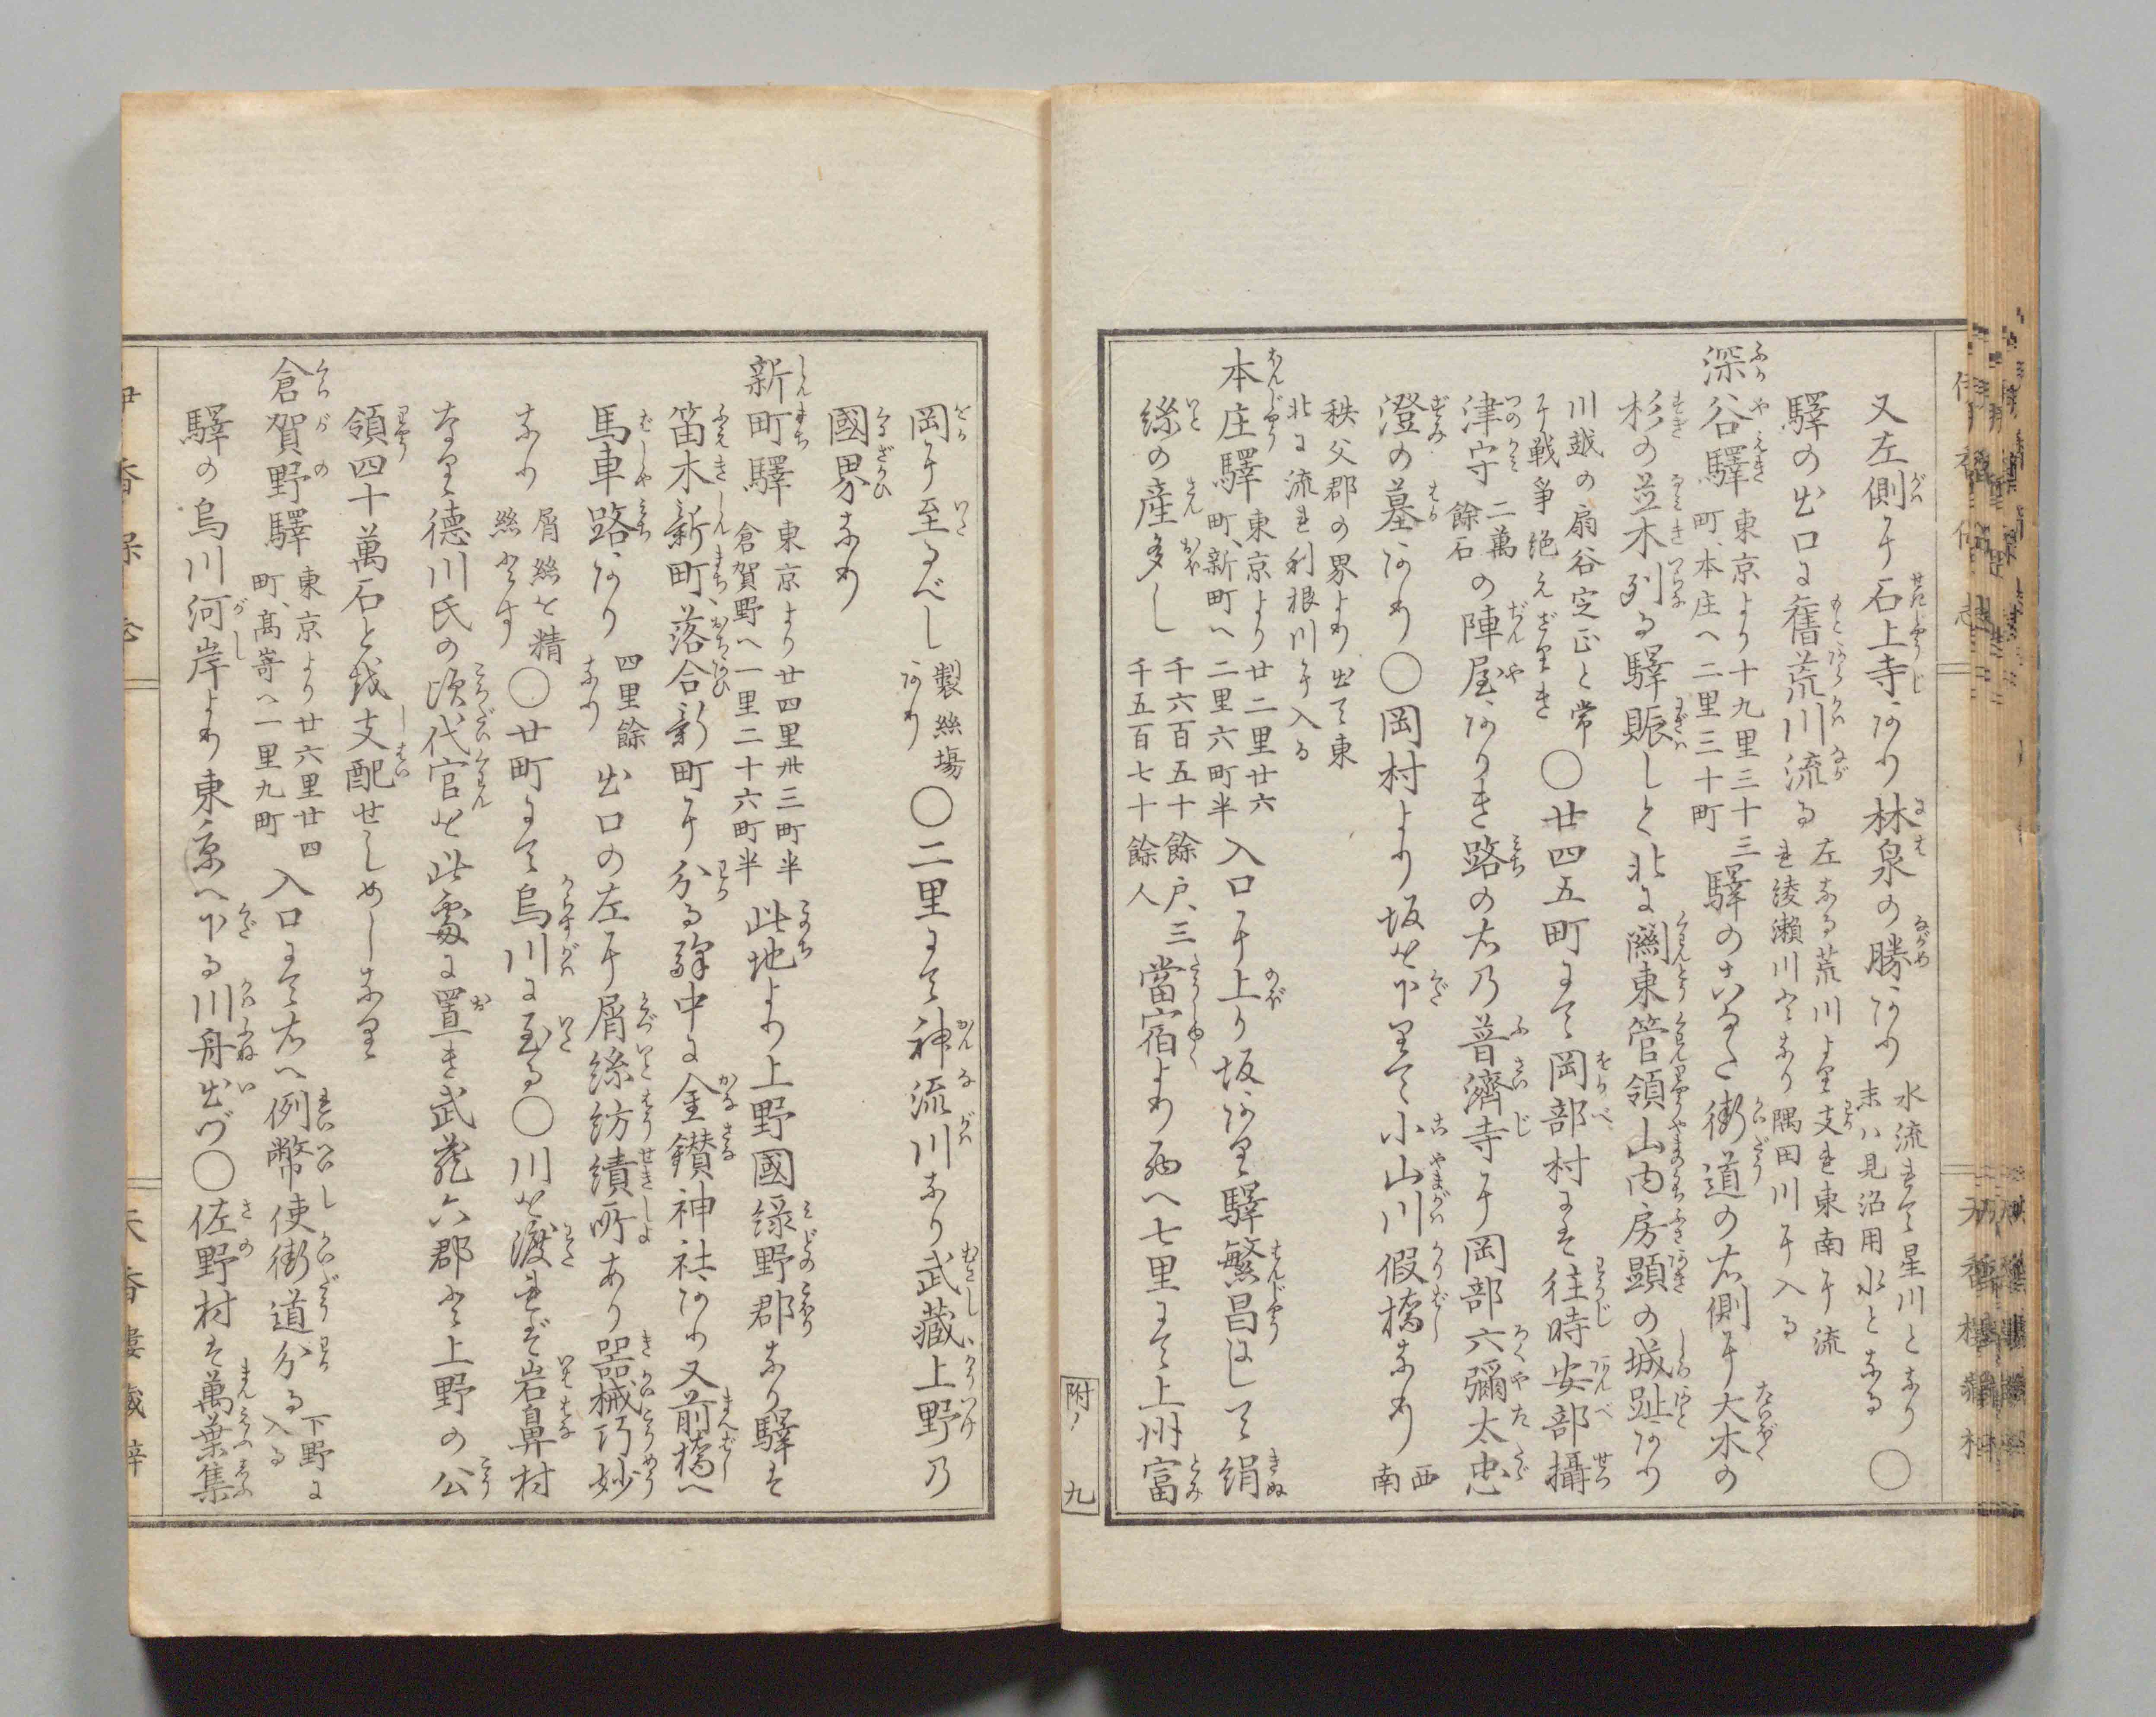 又左側に石上寺あり林泉の勝あり水流れて星川となり末ハ見沼用水となる〇
驛の出口に舊荒川流る左なる荒川より支れ東南に流れ綾瀬川となり隅田川に入る
深谷驛東京より十九里三十三町、本庄へ二里三十町驛のこなた街道の右側に大木の
杉の並木列る驛賑しと北に關東管領山内房顕の城趾あり
川越の扇谷定正と常に戦爭絶えざりき〇廿四五町にて岡部村にて往時安部攝
津守二萬餘石の陣屋ありき路の右の普濟寺に岡部六彌太忠
澄の墓あり〇岡村より坂を下りて小山川假橋なり西南
秩父郡の界より出て東北に流れ利根川に入る
本庄驛東京より廿二里廿六町、新町へ二里六町半入口に上り坂あり驛繁昌にして絹
絲の産多し千六百五十餘戸、三千五百七十餘人當宿より西へ七里にて上州富
附ノ九
岡に至るべし製絲場あり〇二里にて神流川なり武藏上野の
國界なり
新町驛東京より廿四里卅三町半倉賀野へ一里二十六町半此地より上野國緑野郡なり驛は
笛木新町、落合新町に分る驛中に金鑚神社あり又前橋へ
馬車路あり四里餘なり出口の左に屑絲紡績所あり器械巧妙
なり屑絲を精絲とす〇廿町にて烏川に至る〇川を渡れば岩鼻村
なり德川氏の頃代官を此處に置き武藏六郡と上野の公
領四十萬石とを支配せしめしなり
倉賀野驛東京より廿六里廿四町、高嵜へ一里九町入口にて右へ例幣使街道分る下野に入る
驛の烏川河岸より東京へ下る川舟出づ〇佐野村は萬葉集